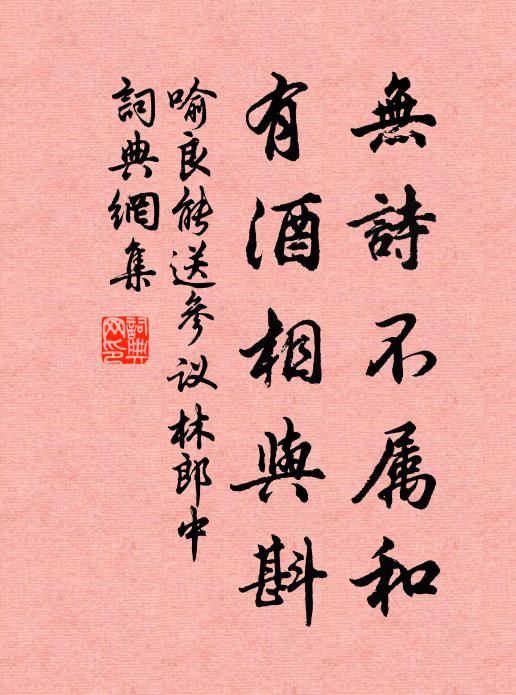 無詩不属和
有酒相與斟
喻良能送參议林郎中
詞典網集
詞典网印